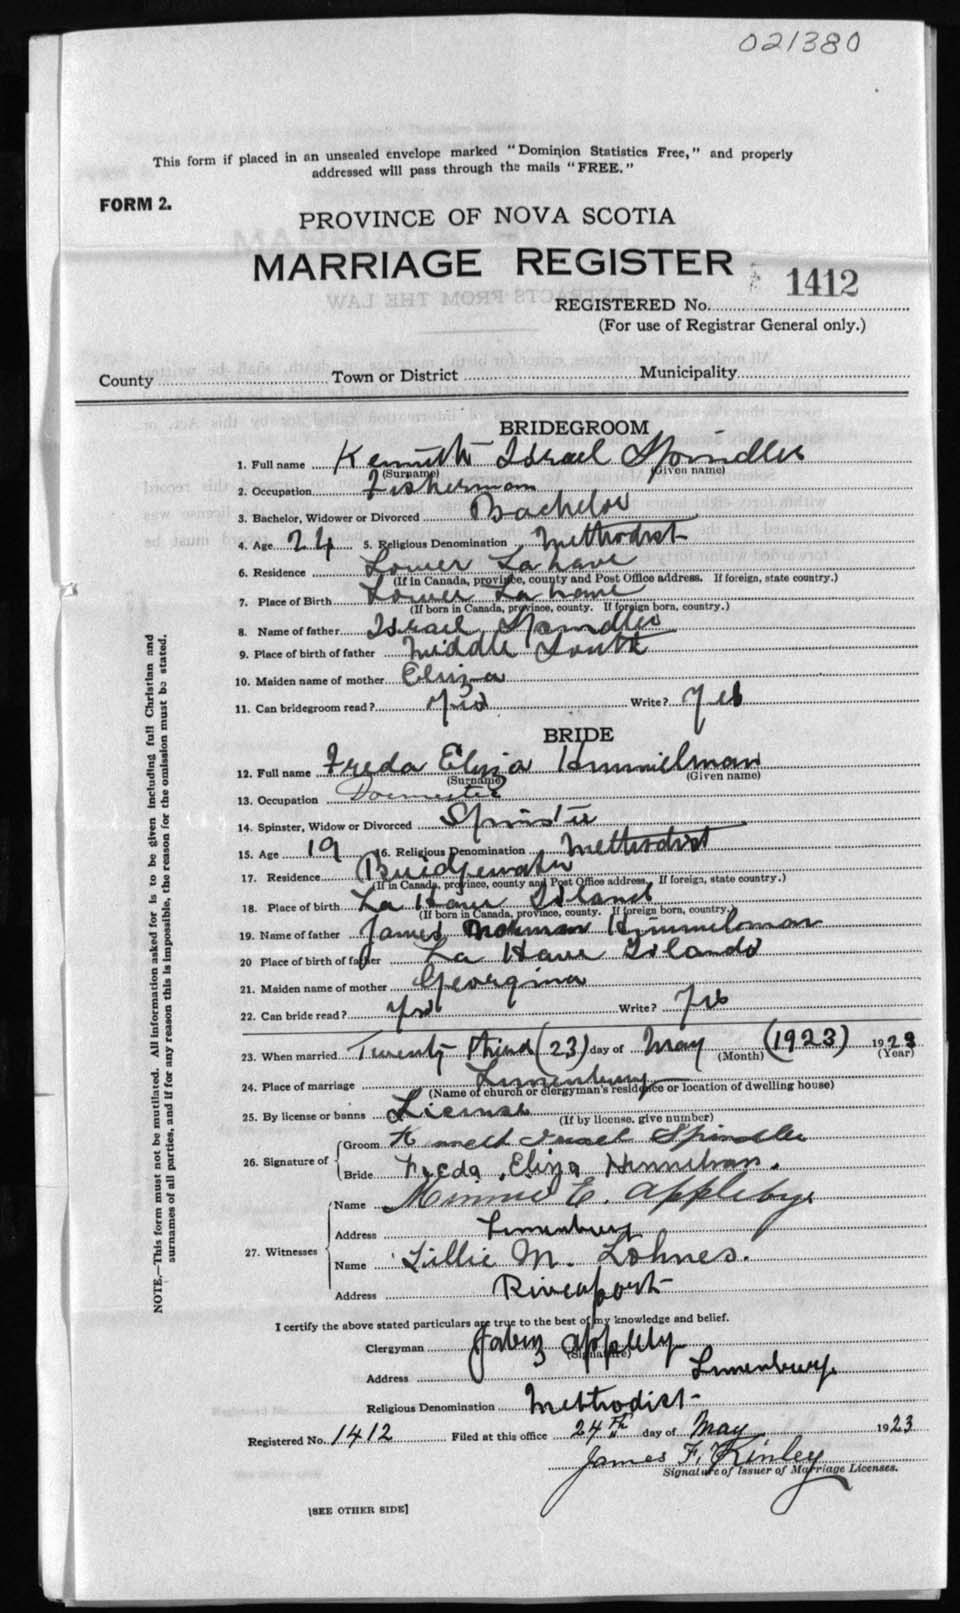 021380
This form if placed in an unsealed envelope marked "Dominion Statistics Free," and properly
addressed will pass through the mails "FREE."
FORM 2.
PROVINCE OF NOVA SCOTIA
MARRIAGE REGISTER
REGISTERED No. 1412
(For use of Registrar General only.)
County Town or District Municipality
BRIDEGROOM
1. Full name Kenneth Israel Spindler
(Surname) (Given name)
2. Occupation Fisherman
3. Bachelor, Widower or Divorced Bachelor
4. Age 24 5. Religious Denomination Methodist
6. Residence Lower Lahave
(If in Canada, province, county and Post Office address. If foreign, state country.)
7. Place of Birth Lower Lahave
(If born in Canada, province, county. If foreign born, country.)
8. Name of father Israel Spindler
9. Place of birth of father Middle South
10. Maiden name of mother Eliza
11. Can bridegroom read? Yes Write? Yes
BRIDE
12. Full name Freda Eliza Himmelman
(Surname) (Given name)
13. Occupation Domestic
14. Spinster, Widow or Divorced Spinster
15. Age 19 16. Religious Denomination Methodist
17. Residence Bridgewater
(If in Canada, province, county and Post Office address. If foreign, state country.)
18. Place of birth La Have Island
(If born in Canada, province, county. If foreign born, country.)
19. Name of father James Norman Himmelman
20 Place of birth of father La Have Islands
21. Maiden name of mother Georgina
22. Can bride read? Yes Write? Yes
23. When married Twenty third (23) day of May (1923) 1923
(Month) (Year)
24. Place of marriage Lunenburg
(Name of church or clergyman's residence or location of dwelling house)
25. By license or banns License
(If by license, give number)
26. Signature of Groom Kenneth Israel Spindler
Bride Freda Eliza Himmelman.
27. Witnesses Name Minnie E. Appleby
Address Lunenburg
Name Lillie M. Lohnes.
Address Riverport
I certify the above stated particulars are true to the best of my knowledge and belief.
Clergyman Jabez Appleby
(Signature)
Address Lunenburg
Religious Denomination Methodist
Registered No. 1412 Filed at this office 24th day of May 1923
James F. Kinley
Signature of Issuer of Marriage Licenses.
[SEE OTHER SIDE]
NOTE.—This form must not be mutilated. All information asked for is to be given including full Christian and
surnames of all parties, and if for any reason this is impossible, the reason for the omission must be stated.